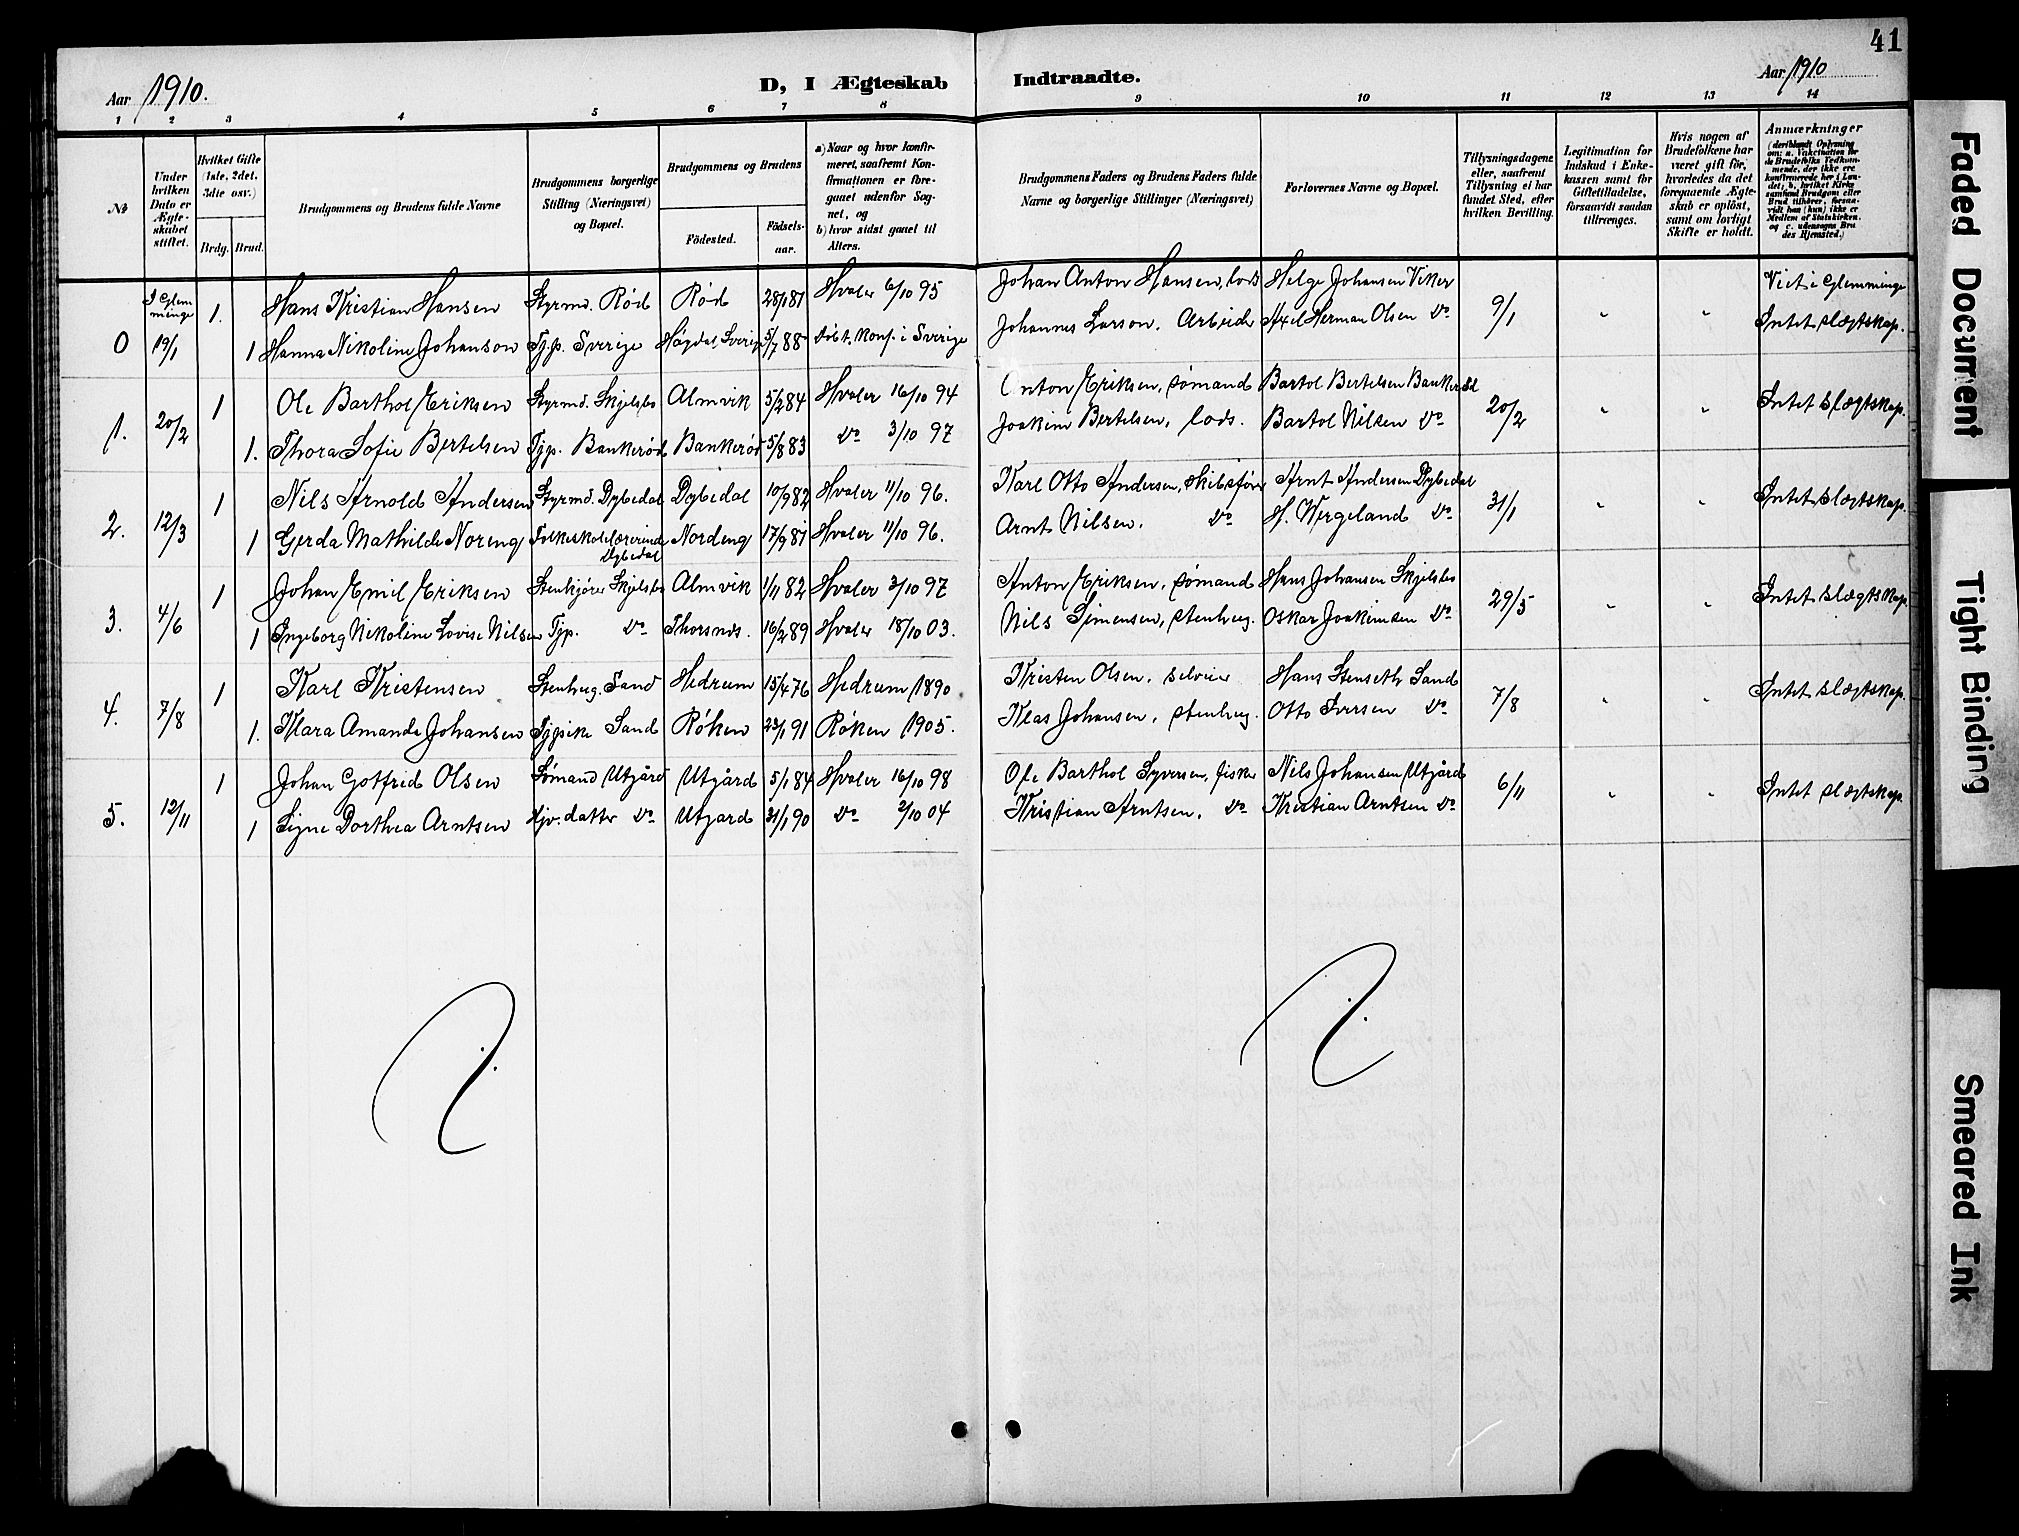 41
Aar 1910.
D, I Ægteskab Indtraadte.
Aar 1910
1 2 3 4 5 6 7 8 9 10 11 12 13 14
№
Under hvilken Dato er Ægteskabet stiftet.
Hvilket Gifte (1ste, 2det, 3die osv.)
Brdg. Brud.
Brudgommens og Brudens fulde Navne
Brudgommens borgerlige Stilling (Næringsvei) og Bopæl.
Brudgommens og Brudens
Fødested.
Fødselsaar.
a) Naar og hvor konfirmeret, saafremt Konfirmationen er foregaaet udenfor Sognet, og
b) hvor sidst gaaet til Alters.
Brudgommens Faders og Brudens Faders fulde Navne og borgerlige Stillinger (Næringsvei)
Forlovernes Navne og Bopæl.
Tillysningsdagene eller, saafremt Tillysning ei har fundet Sted, efter hvilken Bevilling.
Legitimation for Indskud i Enkekassen samt for Giftetilladelse, forsaavidt saadan tiltrænges.
Hvis nogen af Brudefolkene har været gift før, hvorledes da det foregaaende Ægteskab er opløst, samt om lovligt Skifte er holdt.
Anmærkninger (deriblandt Oplysning om: a. Vaccination for de Brudefolks Vedkommende, der ikke ere konfirmerede her i Landet; b. hvilket Kirkesamfund Brudgom eller Brud tilhører, forsaavidt han (hun) ikke er Medlem af Statskirken, og c. udensogns Brudes Hjemsted.)
I Glemminge 1. Hans Kristian Hansen Styrmd. Rød Rød 28/1 81 Hvaler 6/10 95 Johan Anton Hansen, lods Helge Johansen Viker 9/1 " " Viet i Glemminge
0 19/1 1 Hanna Nikoline Johanson Tjp. Sverige Högdal, Sverige 5/7 88 Døbt, Konf. i Sverige Johannes Larson. Arbeider Axel Herman Olsen do Intet slægtskap.
1. 20/2 1 Ole Barthol Eriksen Styrmd. Skjelsbo Almvik 5/2 84 Hvaler 16/10 94 Anton Eriksen, sømand Bartol Bertelsen Bankerød 20/2 " " Intet slægtskap.
1. Thora Sofie Bertelsen Tjp. Bankerød Bankerød 5/8 83 do 3/10 97 Joakim Bertelsen, lods. Bartol Nilsen do
2. 12/3 1 Nils Arnold Andersen Styrmd. Dybedal Dybedal 10/9 82 Hvaler 11/10 96. Karl Otto Andersen, Skibsfører Arnt Andersen Dybedal 31/1 " " Intet slægtskap.
1 Gerda Mathilde Noreng Folkeskolelærerinde Dybedal Nordeng 17/9 81 Hvaler 11/10 96. Arnt Nilsen. do H. Wergeland do
3. 4/6 1 Johan Emil Eriksen Stenkjører Skjelsbo Almvik 1/11 82 Hvaler 3/10 97 Anton Eriksen, sømand Hans Johansen Skjelsbo 29/5 " " Intet slægtskap.
1 Ingeborg Nikoline Lovise Nilsen Tjp. do Thorsnds. 16/2 89 Hvaler 18/10 03. Nils Simensen, stenhug. Oskar Joakimsen do
4. 7/8 1 Karl Kristensen Stenhug. Sand Hedrum 15/4 76 Hedrum 1890. Kristen Olsen, selveier Hans Stenseth Sand 7/8 " " Intet slægtskap.
1. Klara Amanda Johansen Tjpike Sand Røken 23/1 91 Røken 1905. Klas Johansen, stenhug. Otto Iversen do
5. 12/11 1 Johan Gotfred Olsen Sømand Utgård Utgård 5/1 84 Hvaler 16/10 98 Ole Barthol Syversen, fisker Nils Johansen Utgård 6/11 " " Intet slægtskap.
1 Signe Dorthea Arntsen Hjv. datter do Utgård 31/1 90 do 2/10 04 Kristian Arntsen. do Kristian Arntsen do
Faded Document
Tight Binding
Smeared Ink